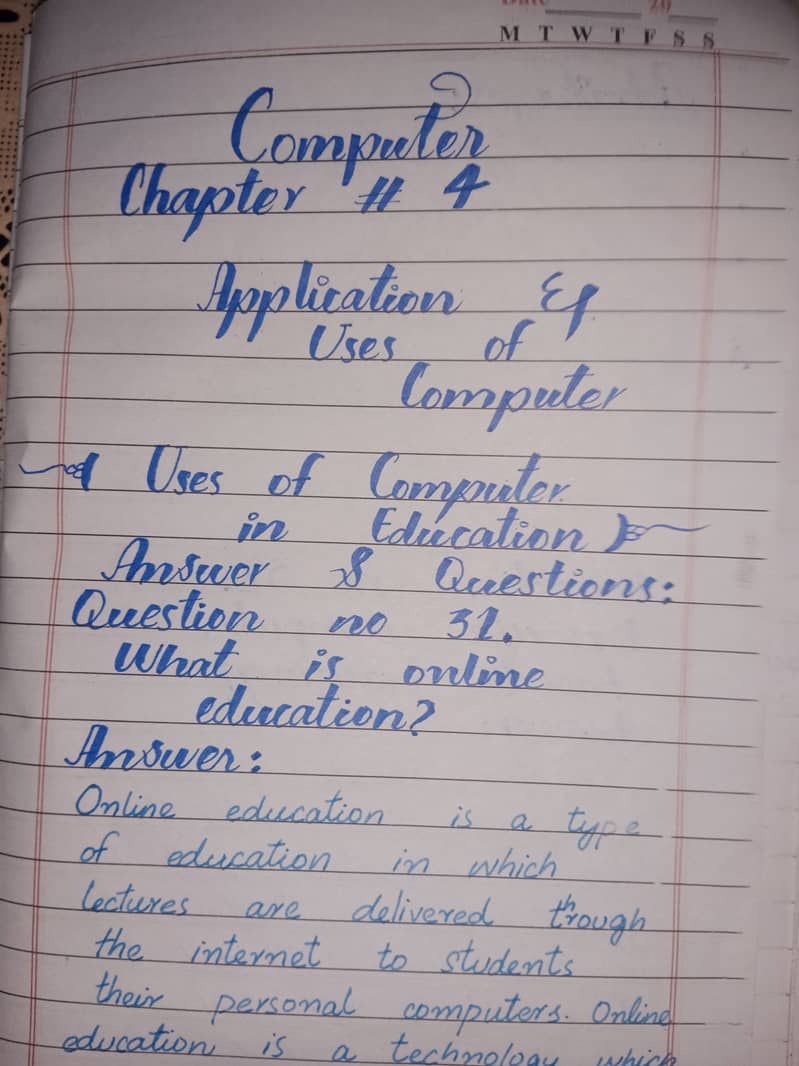 Date 20
M T W T F S S
Computer
Chapter # 4
Application &
Uses of
Computer
Uses of Computer
in Education
Answer & Questions:
Question no 31.
What is online
education?
Answer:
Online education is a type
of education in which
lectures are delivered through
the internet to students
their personal computers. Online
education is a technology which